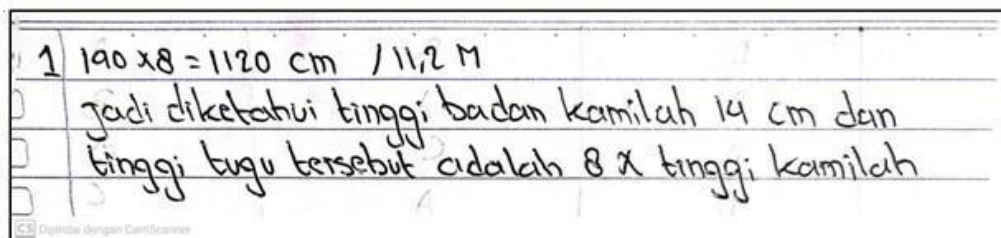 1 190 x8 = 1120 cm / 11,2 M
Jadi diketahui tinggi badan kamilah 14 cm dan
tinggi tugu tersebut adalah 8 x tinggi kamilah
CS Dipindai dengan CamScanner